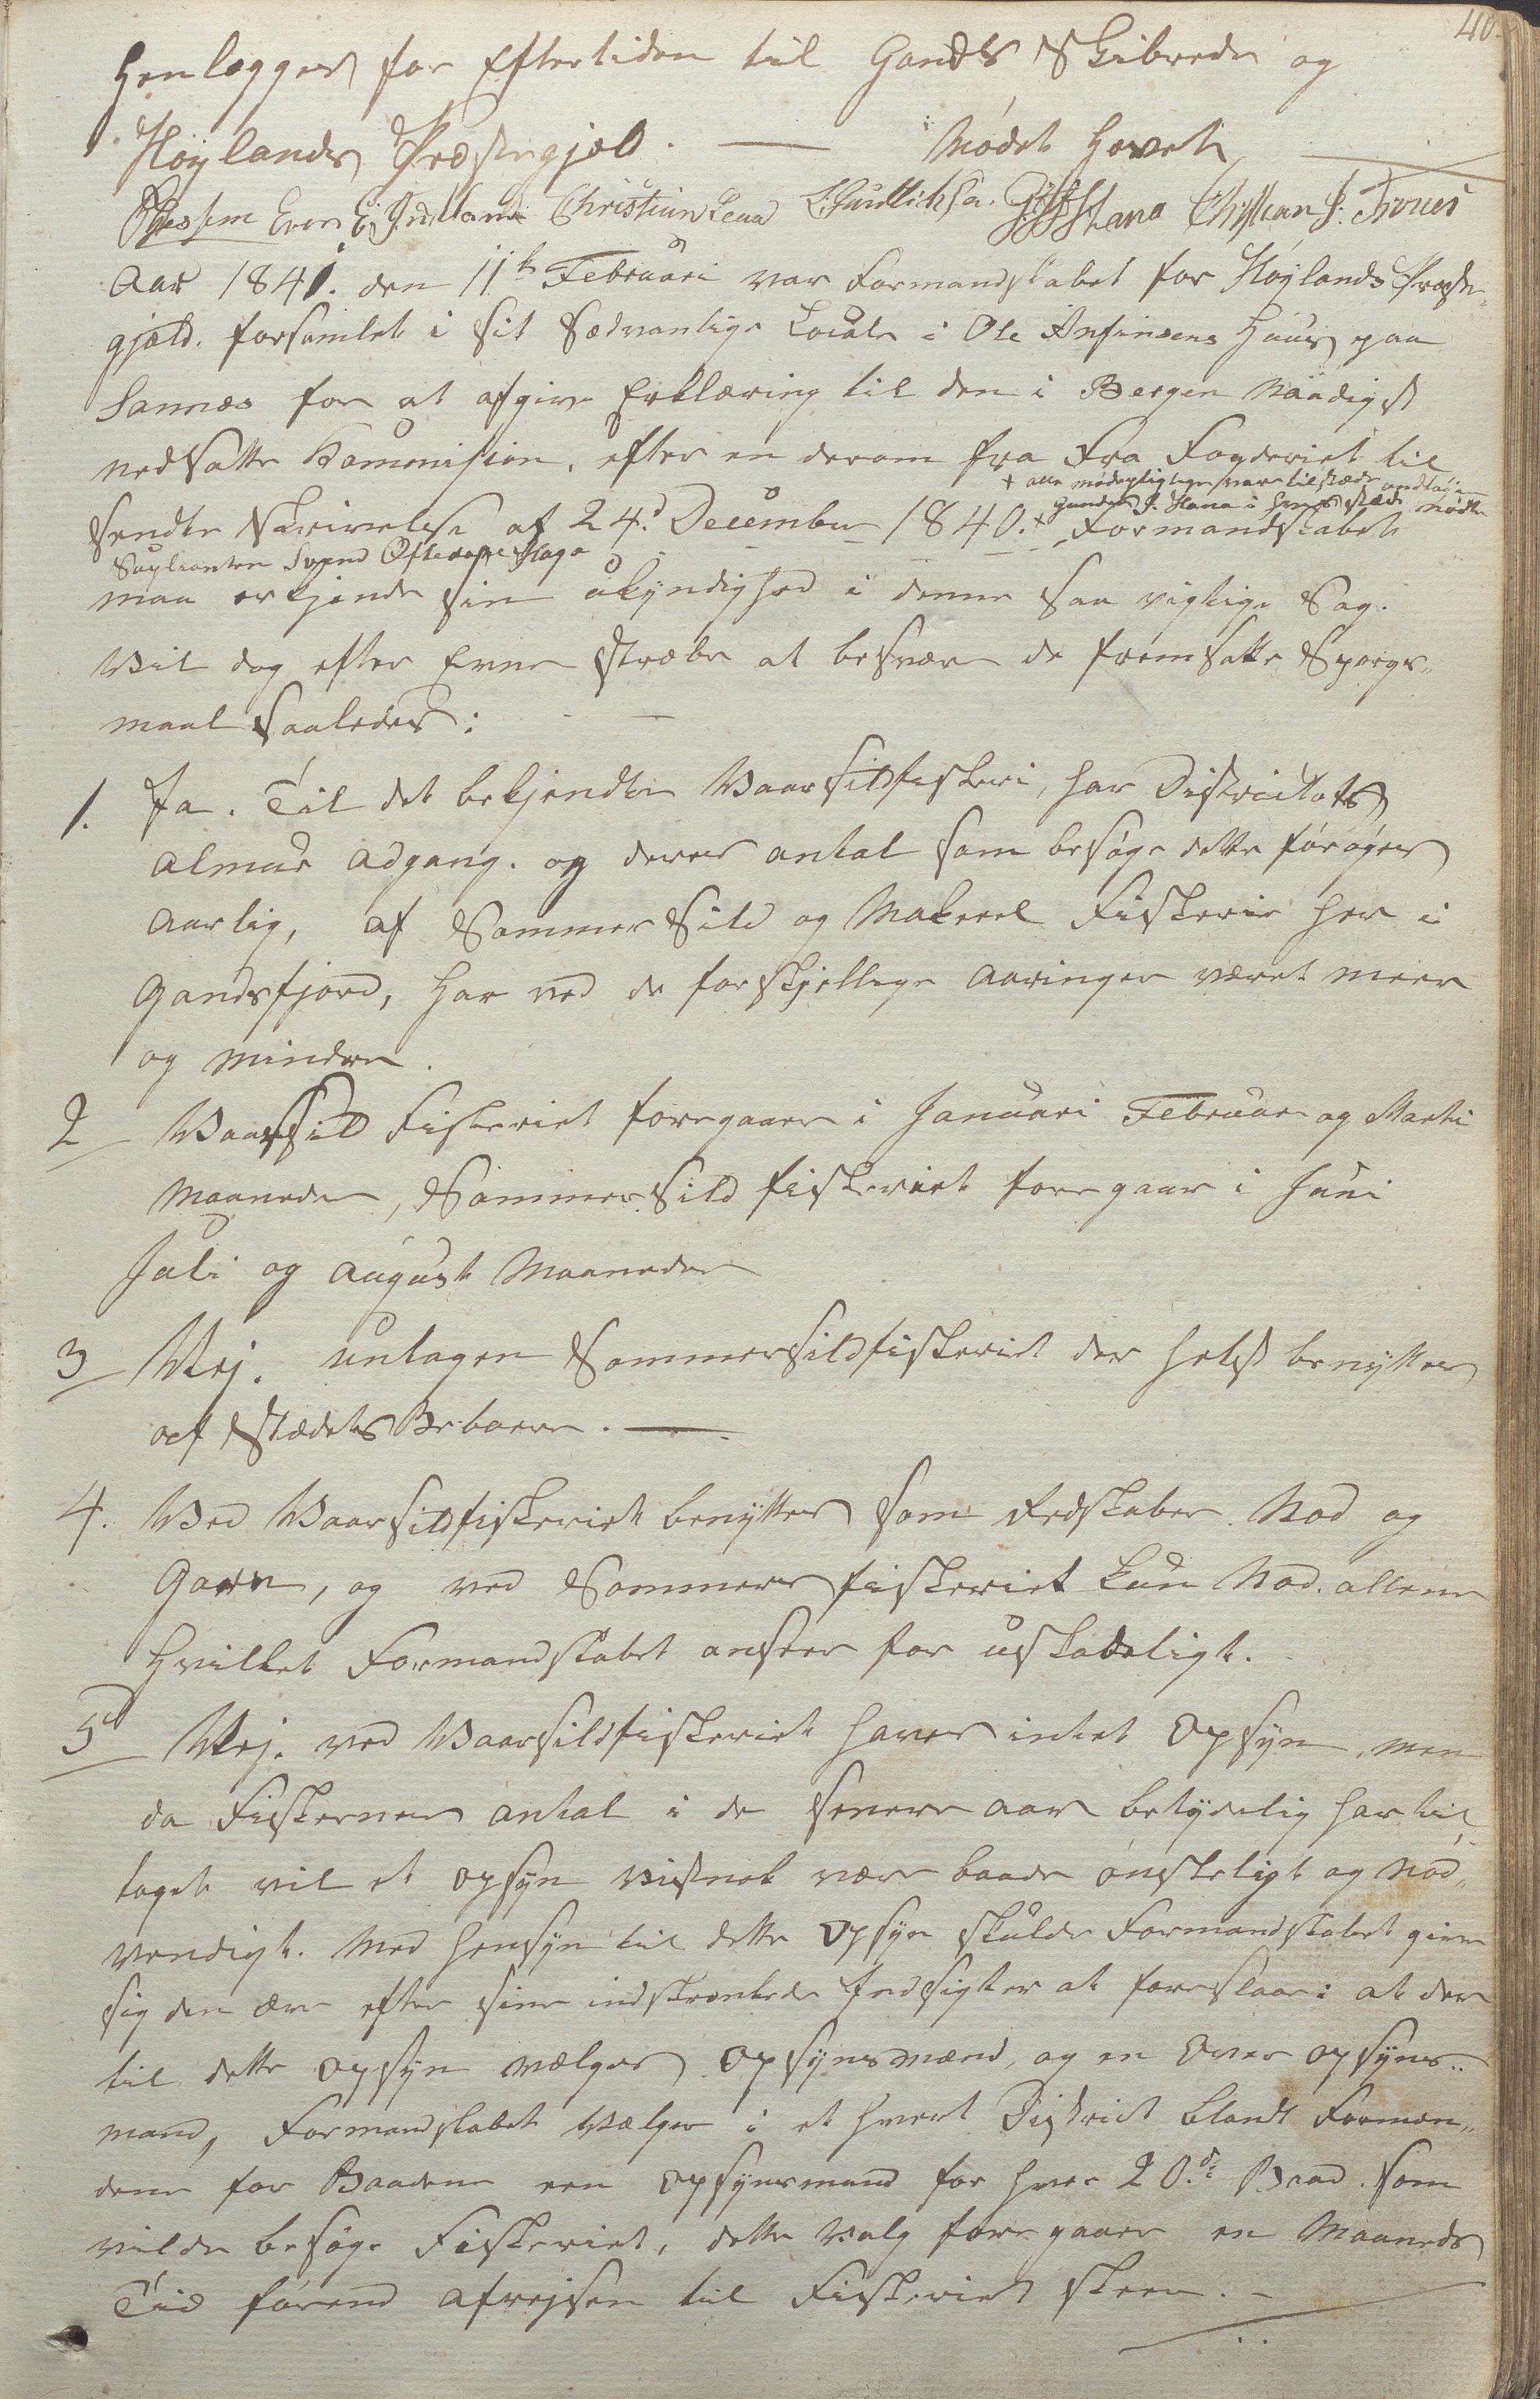 40.
henlægges for Eftertiden til Gands Skibrede og
Høylands Præstegjæld. — Mødet hævet —
Even E. Indland Christian Lena L. Gudlichsen. Christian J. Froues
Aar 1841. den 11te Februari var Formandskabet for Høylands Præste-
gjæld. forsamlet i sit sædvanlige Locale i Ole Ansinsens Huus paa
Sannæs for at afgive Erklæring til den i Bergen Naadigst
nedsatte Kommission, efter en derom fra Fra Fogderiet til
+ alle mødepligtige vare tilstæde undtagen
Gunder J. Hana i hvis sted mødte
sendte Skrivelse af 24.d December 1840.+ Formandskabet
Suplianten Svend Oftedahl Hage
maa erkjende sin ukyndighed i denne saa vigtige Sag.
Vil dog efter Evne stræbe at besvare de fremsatte Spørgs-
maal saaledes: —
1. Ja. Til det bekjendte Vaarsildfiskeri, har Districtets
Almue adgang. og deres antal som besøge dette forøges
aarlig, af Sommer Sild og Makerel Fiskerie her i
Gandsfjord, har ved de forskjellige Aaringer været meer
og mindre.
2 Vaarsild Fiskeriet foregaaer i Januari Februar og Marti
Maaneder, Sommer Sild fiskeriet foregaar i Juni
Juli og August Maaneder
3 Nej. untagen Sommersildfiskeriet der helst benyttes
af Stædets Beboere. —
4. Ved Vaarsildfiskeriet benyttes som Redskaber. Nod og
Garn, og ved Sommer fiskeriet kun Nod. allene
hvilket Formandskabet anseer for uskadeligt.
5 Nej. ved Vaarsildfiskeriet haves intet Opsyn, men
da Fiskernes antal i de senere aar betydelig har til-
taget vil et opsyn vistnok være baade ønskeligt og Nød-
vendigt. Med hensyn til dette Opsyn skulde Formandskabet give
sig den ære efter sine indskrænkede Indsigter at foreslaae: at der
til dette opsyn vælges Opsynsmænd, og en Over opsyns-
mand, Formandskabet Vælger i et hvert District blandt Formæn-
dene for Baadene een Opsynsmand for hver 20.de Baad. som
vilde besøge Fiskeriet, dette Valg foregaaer en Maaneds
Tid førend afrejsen til Fiskeriet skeer. —